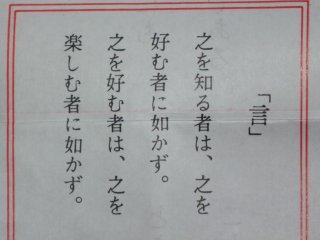 「言」
之を知る者は、之を
好む者に如かず。
之を好む者は、之を
楽しむ者に如かず。